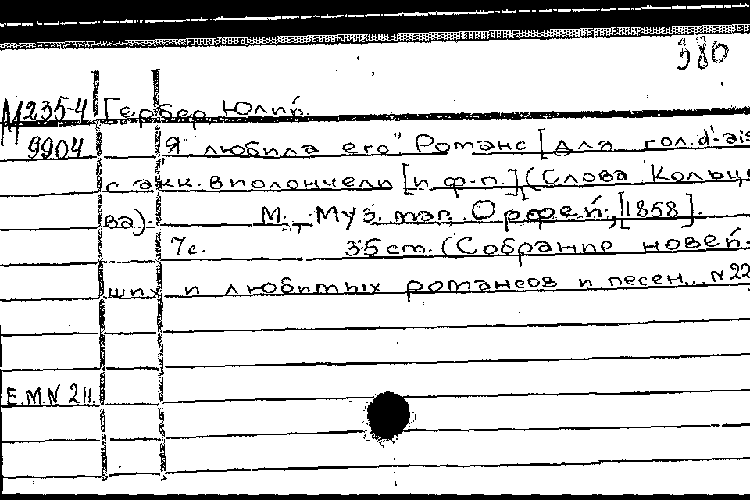 380
М235-4 Гербер, Юлий.
9904 Я любила его" Романс [для гол. d'-ais
с акк. виолончели [и ф-п.] (Слова Кольцо
ва). М., Муз. маг. Орфей, [1858].
7с. 35 cm. (Собрание новей-
ших и любимых романсов и песен... N 22
E.M.N 211.